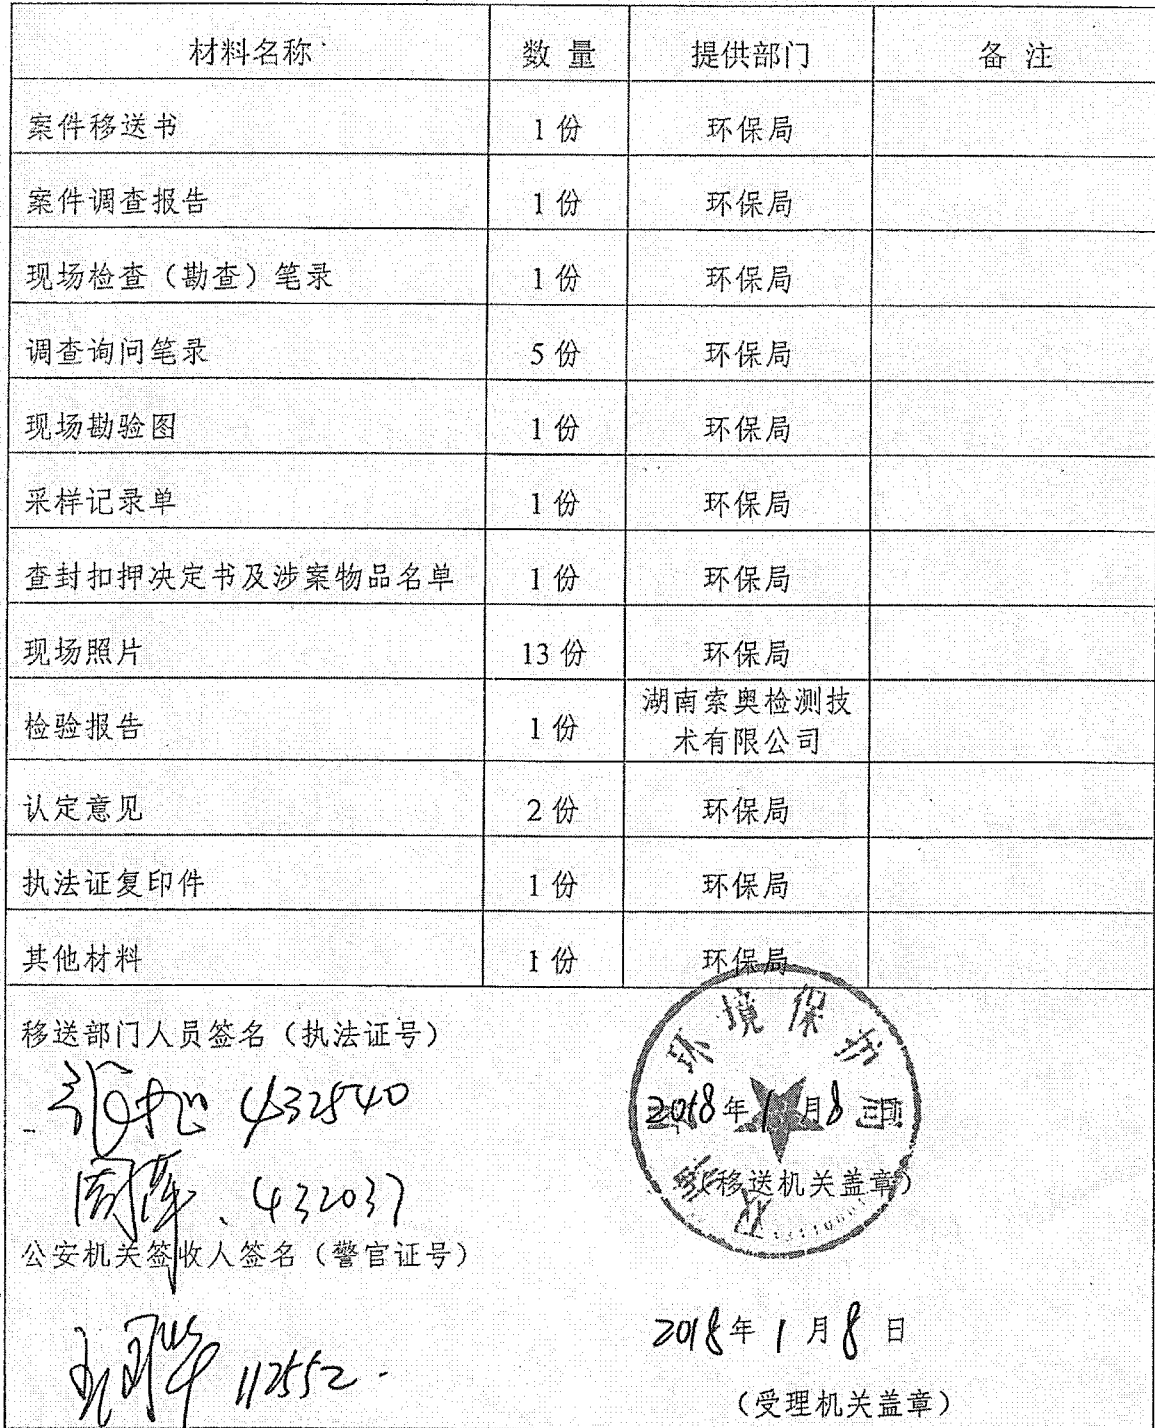 材料名称 数 量 提供部门 备 注
案件移送书 1 份 环保局
案件调查报告 1 份 环保局
现场检查（勘查）笔录 1 份 环保局
调查询问笔录 5 份 环保局
现场勘验图 1 份 环保局
采样记录单 1 份 环保局
查封扣押决定书及涉案物品名单 1 份 环保局
现场照片 13 份 环保局
检验报告 1 份 湖南索奥检测技
术有限公司
认定意见 2 份 环保局
执法证复印件 1 份 环保局
其他材料 1 份 环保局
环境保护局
移送部门人员签名（执法证号）
432540
2018年1月8日
周萍、432037
（移送机关盖章）
公安机关签收人签名（警官证号）
112552.
2018年1月8日
（受理机关盖章）